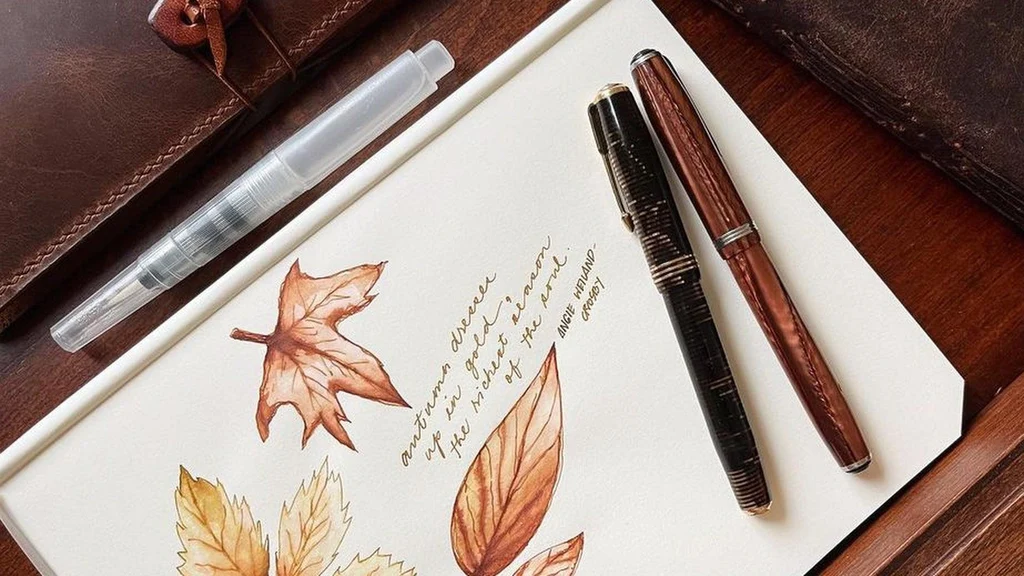 autumn dresses
up in gold
the richest season
of the soul.
ANGIE WEILAND-
CROSBY